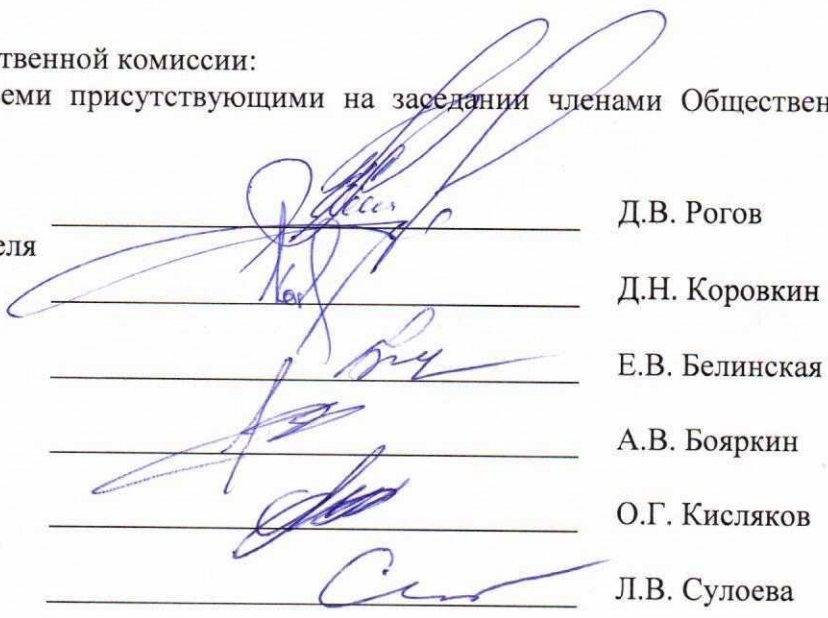 твенной комиссии:
еми присутствующими на заседании членами Обществен
Д.В. Рогов
еля
Д.Н. Коровкин
Е.В. Белинская
А.В. Бояркин
О.Г. Кисляков
Л.В. Сулоева